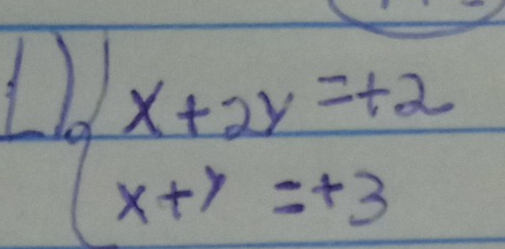 1) x+2y=+2
x+y=+3